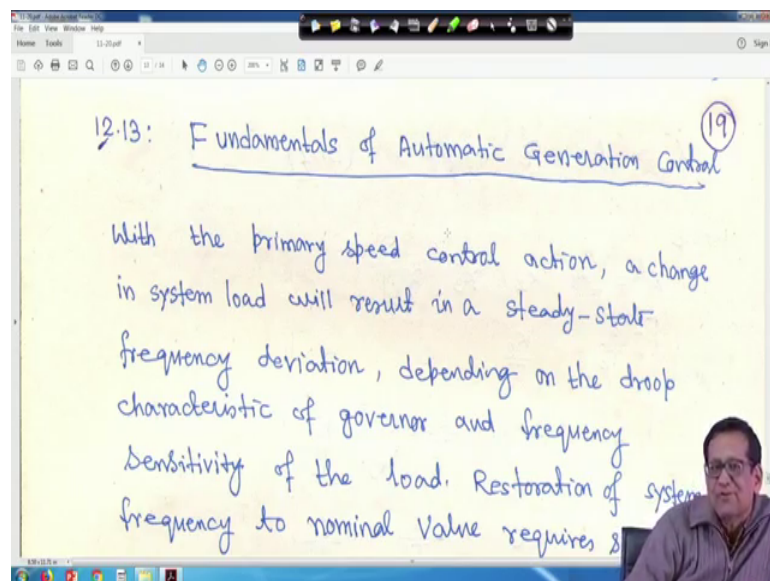 11-20.pdf - Adobe Acrobat Reader DC
File Edit View Window Help
Home Tools 11-20.pdf × Sign
12.13: Fundamentals of Automatic Generation Control
19
With the primary speed control action, a change
in system load will result in a steady-state
frequency deviation, depending on the droop
characteristic of governor and frequency
sensitivity of the load. Restoration of system
frequency to nominal value requires s